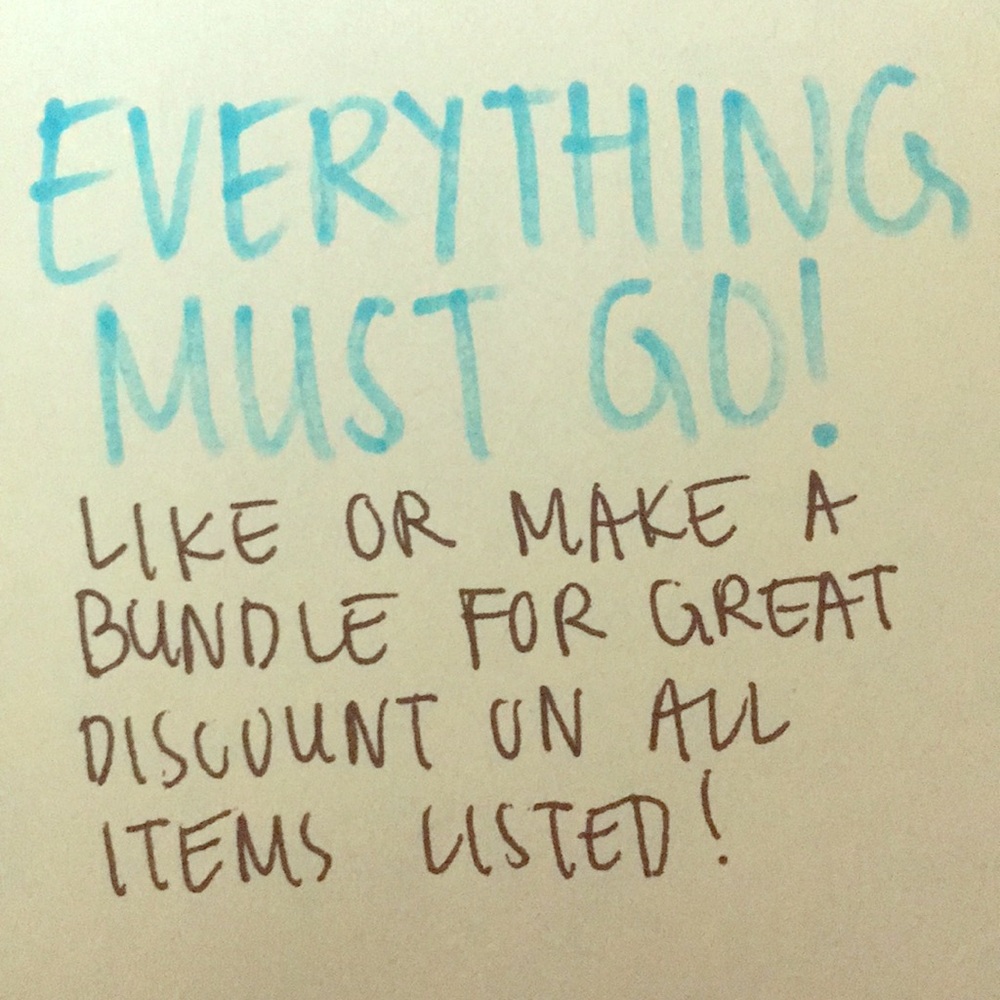 EVERYTHING
MUST GO!
LIKE OR MAKE A
BUNDLE FOR GREAT
DISCOUNT ON ALL
ITEMS LISTED!